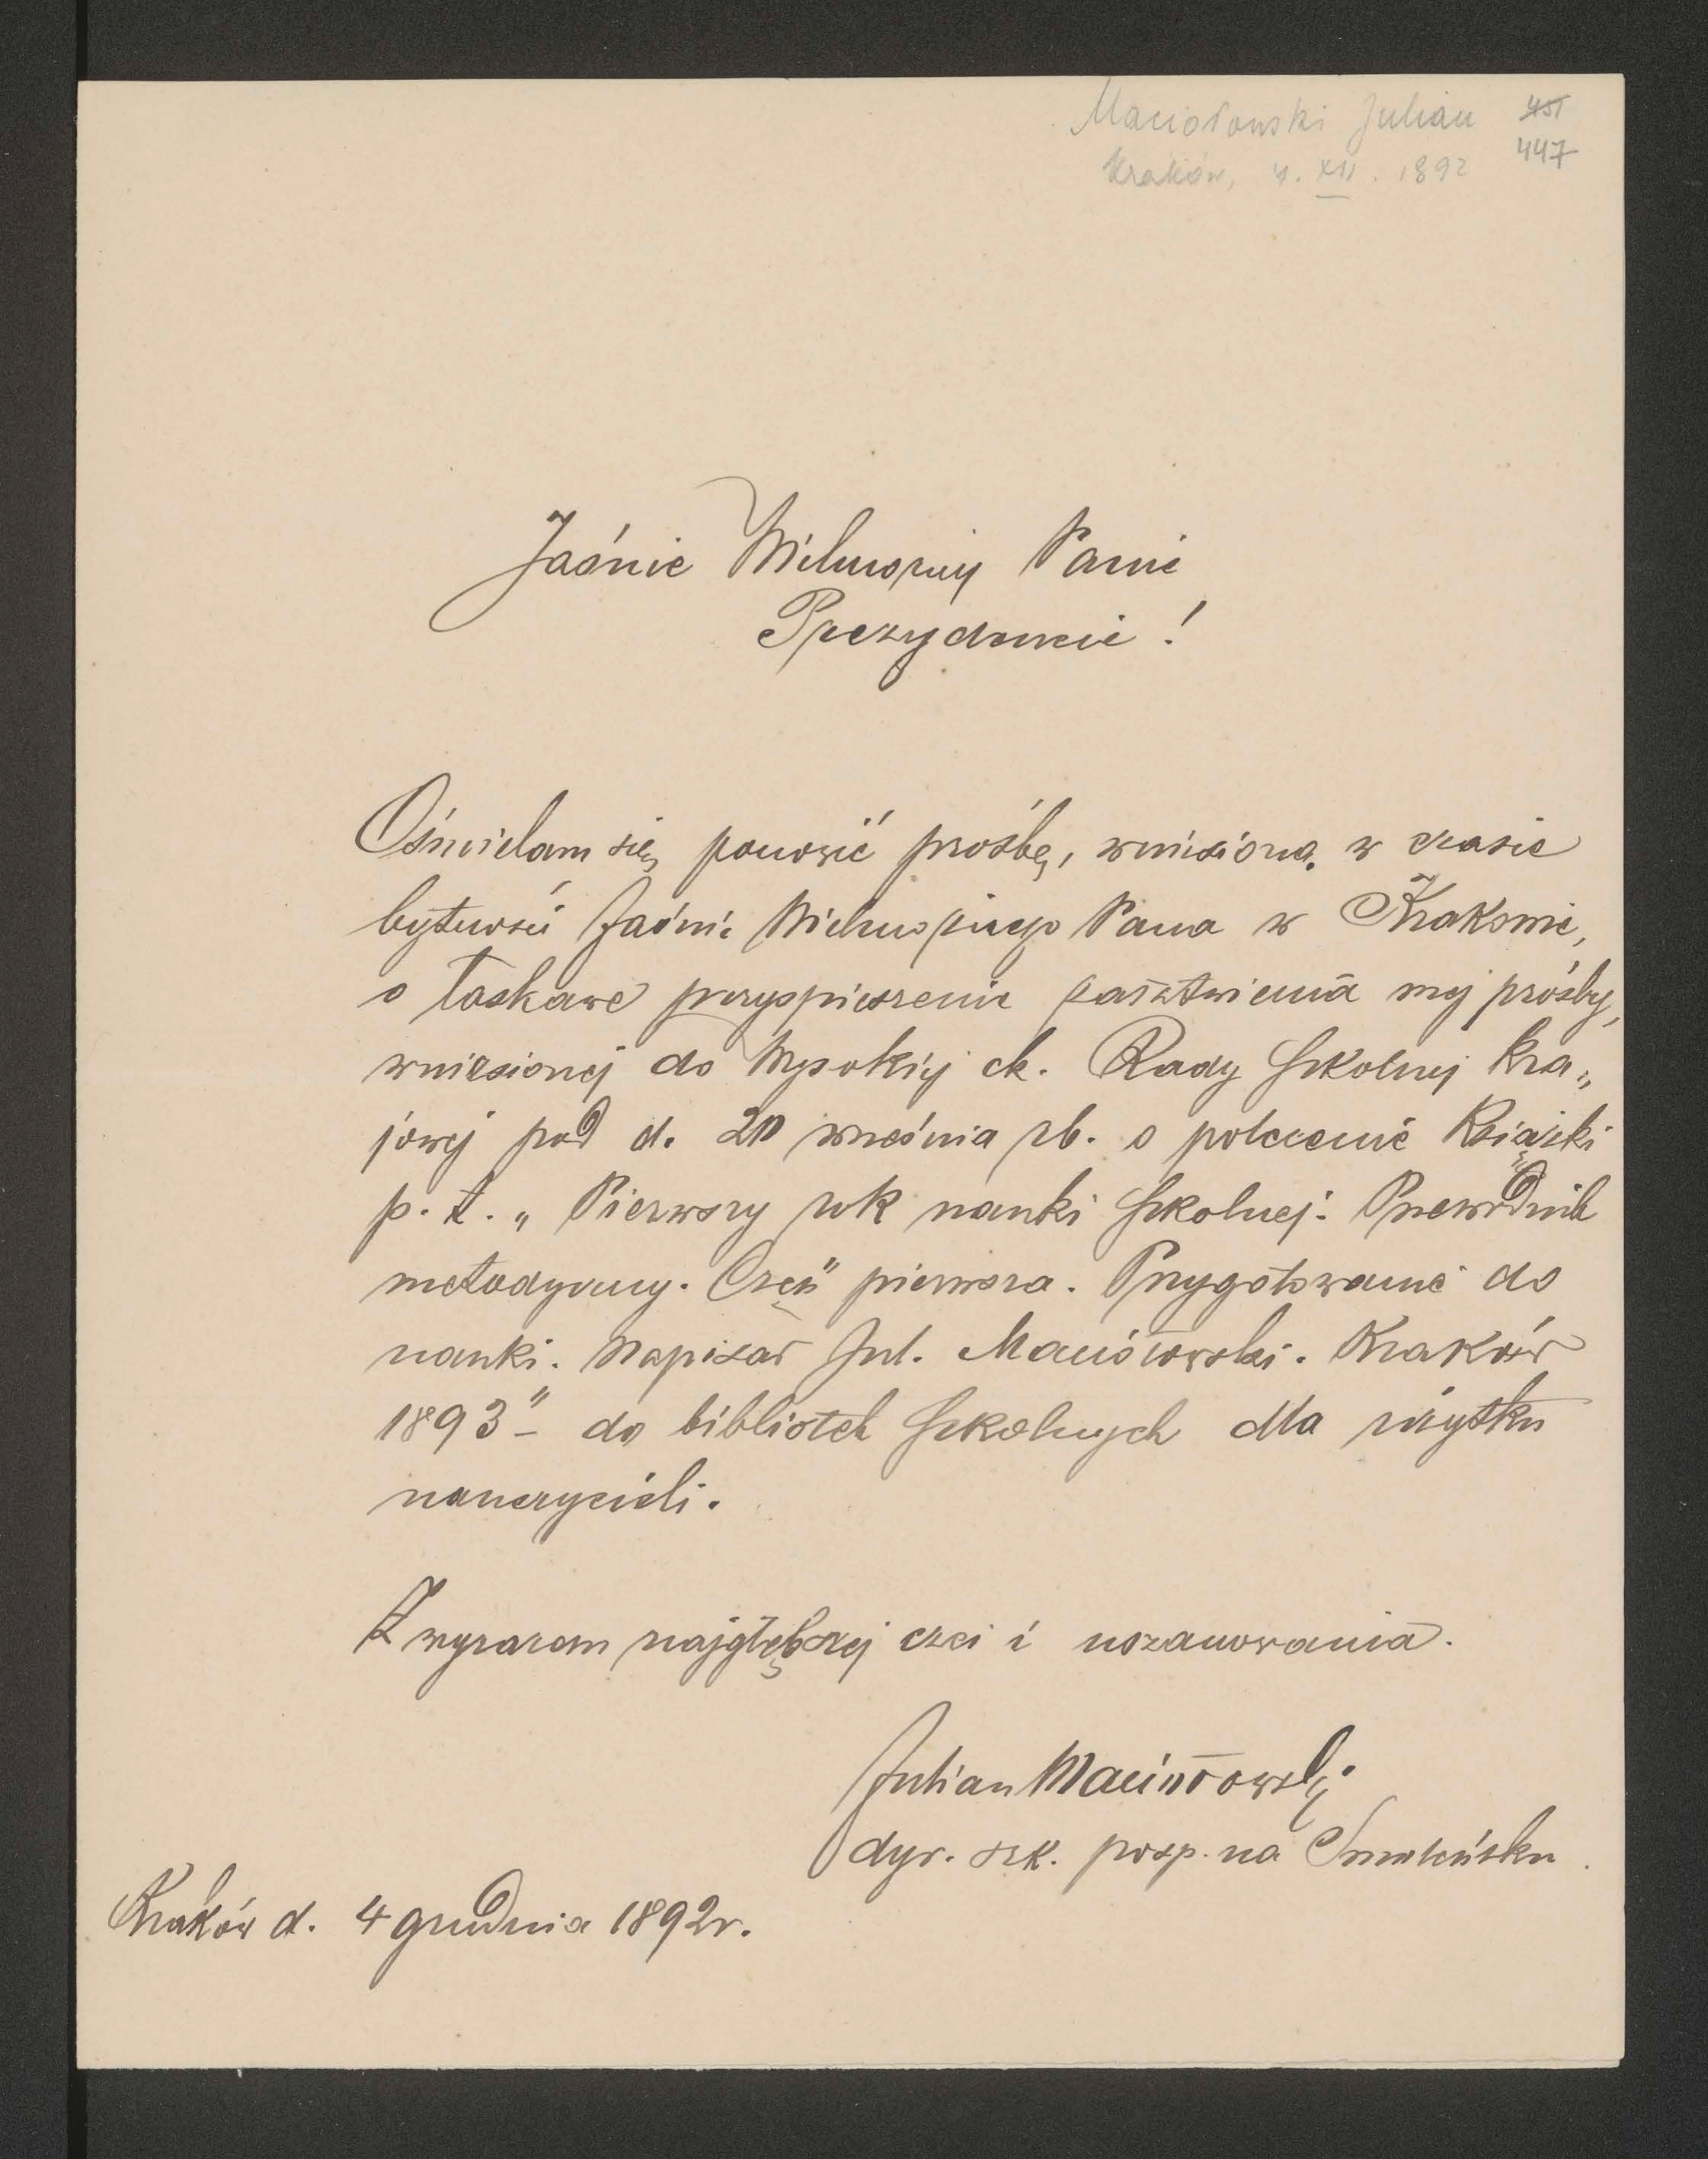 Maciołowski Julian 451
Kraków, 4. XII. 1892 447
Jaśnie Wielmożny Panie
Prezydencie!
Ośmielam się ponowić prośbę, wniesioną w czasie
bytności Jaśnie Wielmożnego Pana w Krakowie,
o łaskawe przyspieszenie załatwienia mej prośby,
wniesionej do Wysokiej ck. Rady szkolnej kra„
jowej pod d. 20 września rb. o polecenie książki
p. t. „Pierwszy rok nauki szkolnej. Przewodnik
metodyczny. Część pierwsza. Przygotowanie do
nauki. Napisał Jul. Maciołowski. Kraków
1893" - do bibliotek szkolnych dla użytku
nauczycieli.
Z wyrazem najgłębszej czci i uszanowania.
Julian Maciołowski
dyr. szk. posp. na Smoleńsku.
Kraków d. 4 grudnia 1892r.